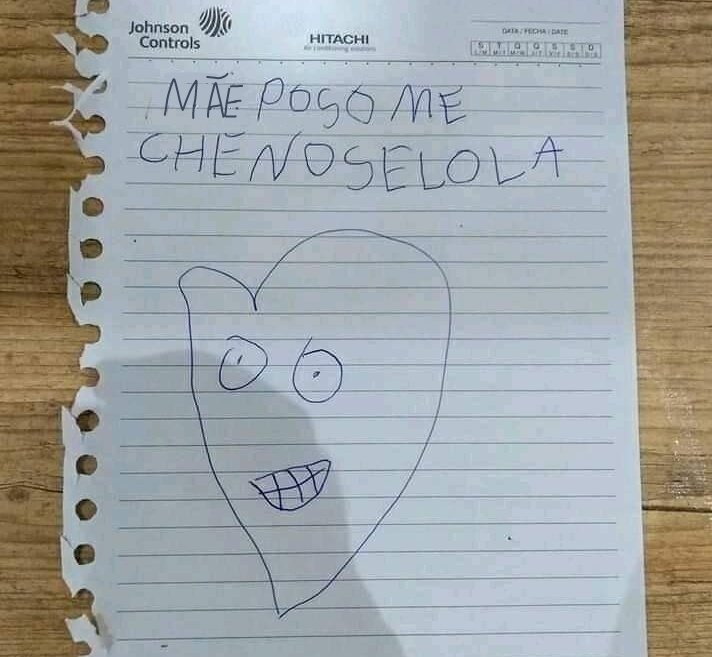 Johnson
Controls
HITACHI
Air conditioning solutions
DATA / FECHA / DATE
S T Q Q S S D
MÃE POSO ME
CHE NO SELOLA